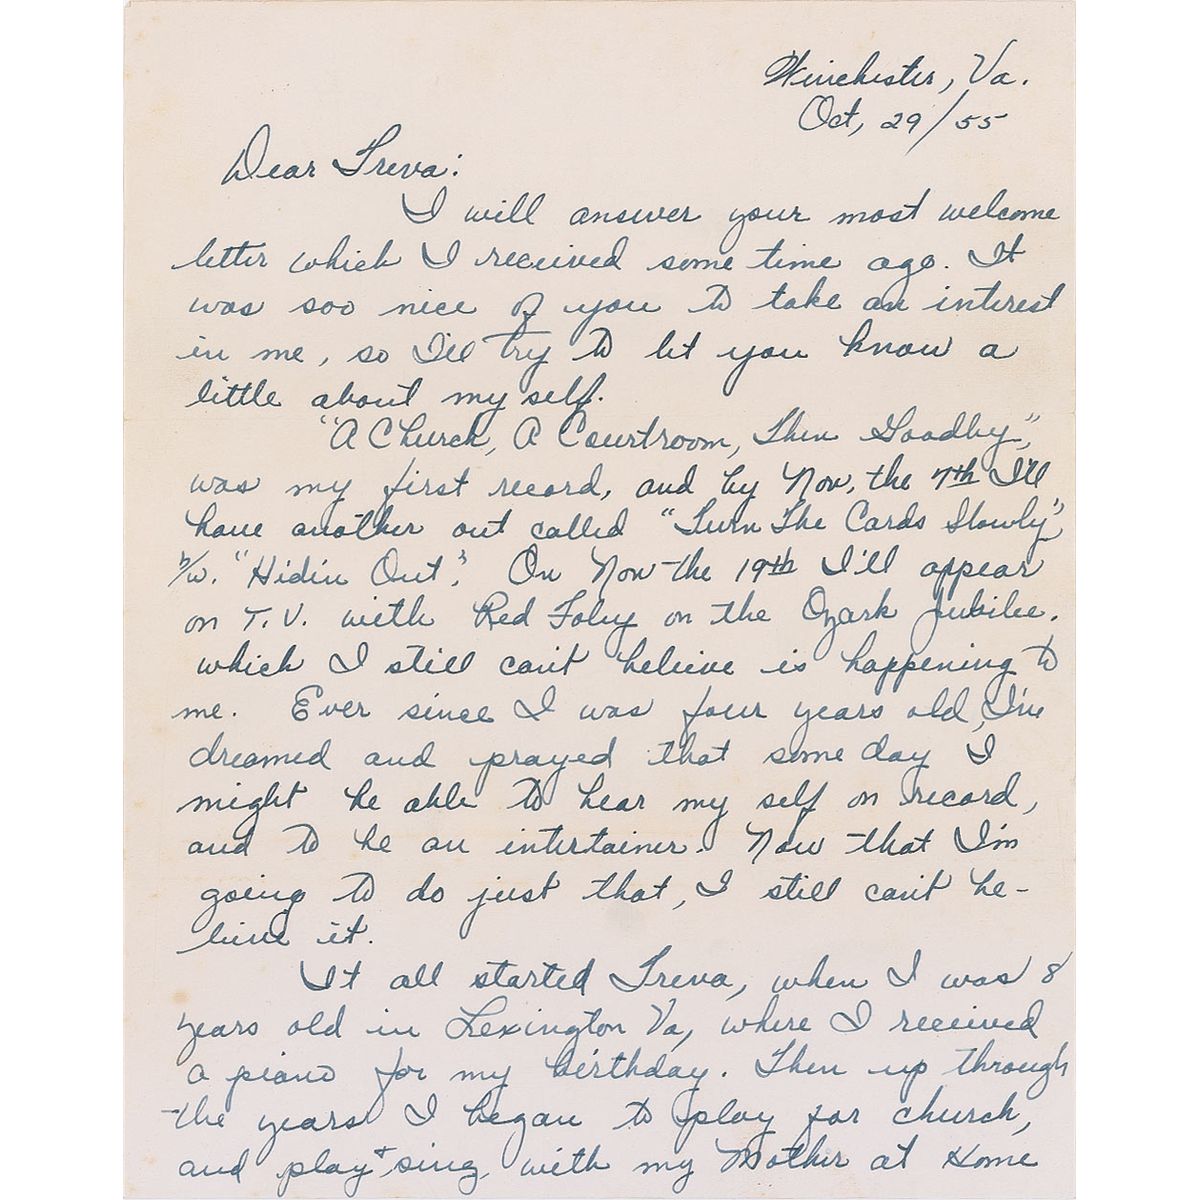 Winchester, Va.
Oct, 29/55
Dear Treva:
I will answer your most welcome
letter which I received some time ago. It
was soo nice of you to take an interest
in me, so I'll try to let you know a
little about my self.
"A Church, A Courtroom, Then Goodby",
was my first record, and by Nov, the 7th I'll
have another out called "Turn The Cards Slowly"
b/w. "Hidin Out". On Nov the 19th I'll appear
on T.V. with Red Foley on the Ozark Jubilee.
which I still can't believe is happening to
me. Ever since I was four years old, I've
dreamed and prayed that some day I
might be able to hear my self on record,
and to be an intertainer. Now that I'm
going to do just that, I still can't be-
lieve it.
It all started Treva, when I was 8
years old in Lexington Va, where I received
a piano for my birthday. Then up through
the years I began to play for church,
and play + sing with my Mother at Home